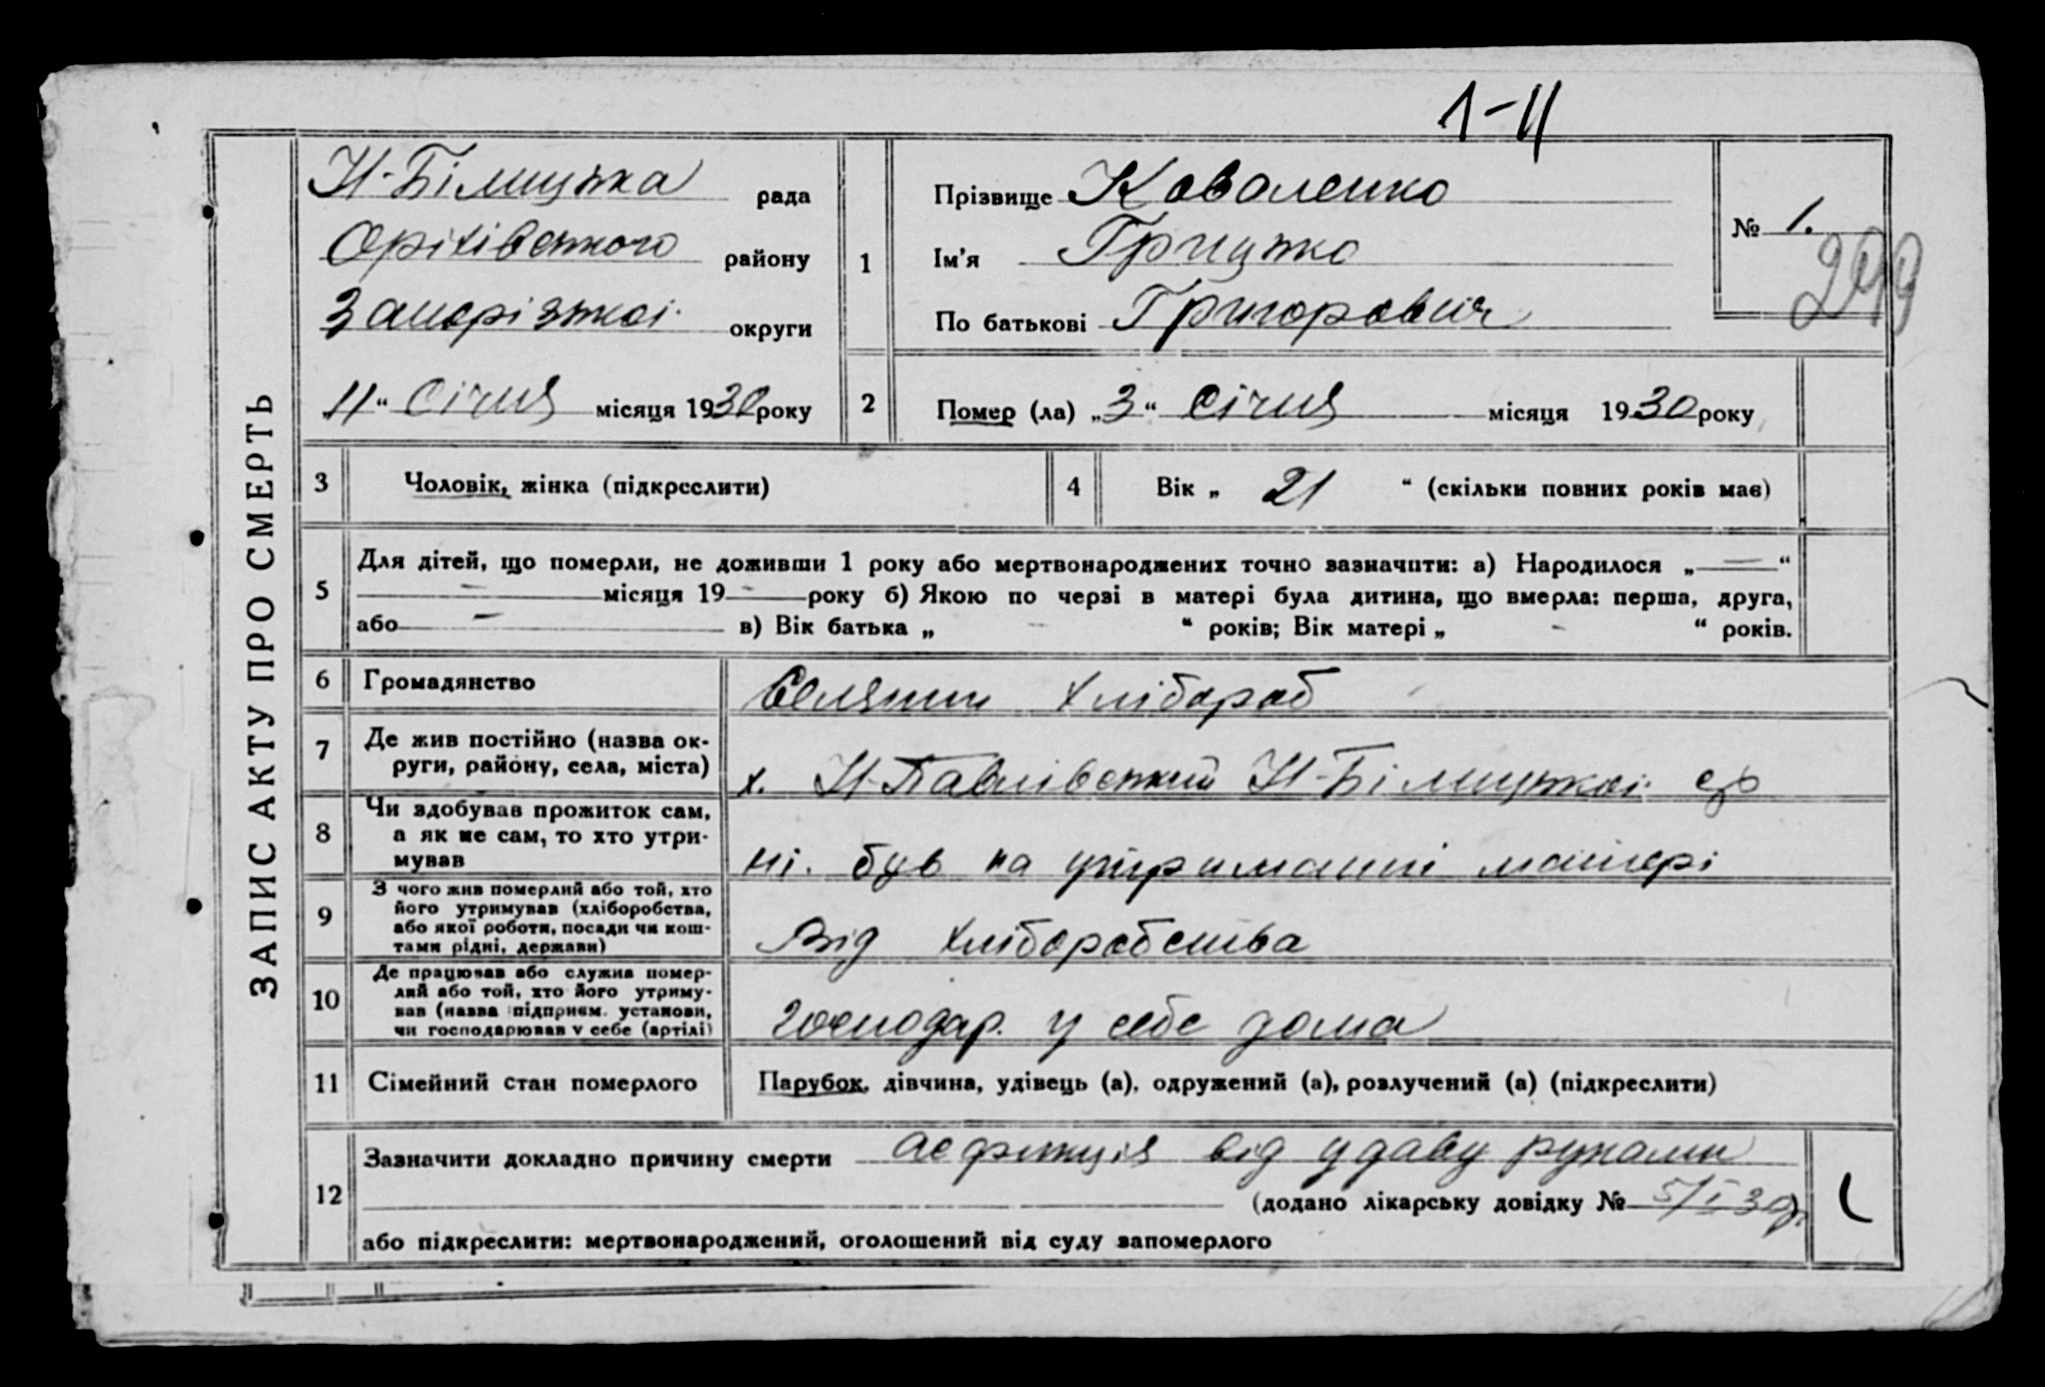 1-11
Н-Білицька рада
Оріхівського району
Запорізької округи
„11“ Січня місяця 1930 року
1
Прізвище Коваленко
Ім'я Грицько
По батькові Григорович
№ 1.
299
2
Помер (ла) „3“ Січня місяця 1930 року
ЗАПИС АКТУ ПРО СМЕРТЬ
3 Чоловік, жінка (підкреслити)
4 Вік „ 21 “ (скільки повних років має)
5
Для дітей, що померли, не доживши 1 року або мертвонароджених точно зазначити: а) Народилося „ — “
— місяця 19 — року б) Якою по черзі в матері була дитина, що вмерла: перша, друга,
або — в) Вік батька „ - “ років; Вік матері „ - “ років.
6 Громадянство Селянин хлібороб
7 Де жив постійно (назва ок-
руги, району, села, міста)
х. Н-Павлівський Н-Білицької с/р
8 Чи здобував прожиток сам,
а як не сам, то хто утри-
мував
ні. був на утриманні матері
9 З чого жив померлий або той, хто
його утримував (хліборобства,
або якої роботи, посади чи кош-
тами рідні, держави)
Від хліборобства
10 Де працював або служив помер-
лий або той, хто його утриму-
вав (назва підприєм. установи,
чи господарював у себе (артілі)
господар. у себе дома
11 Сімейний стан померлого Парубок, дівчина, удівець (а), одружений (а), розлучений (а) (підкреслити)
12
Зазначити докладно причину смерти асфикція від удаву руками
(додано лікарську довідку № 5/I 30р.
або підкреслити: мертвонароджений, оголошений від суду запомерлого